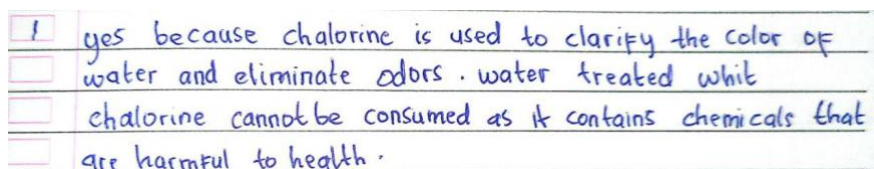 1 yes because chalorine is used to clarify the color of
water and eliminate odors. water treated whit
chalorine cannot be consumed as it contains chemicals that
are harmful to health.